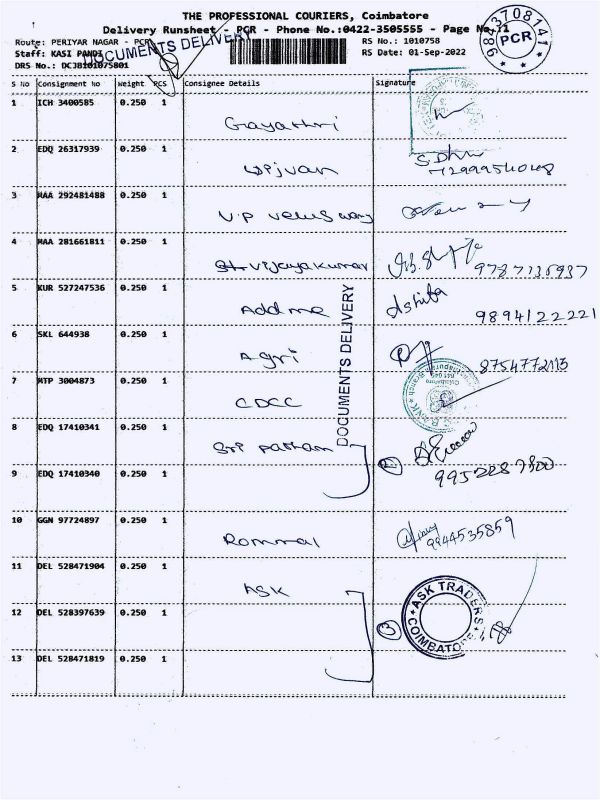 THE PROFESSIONAL COURIERS, Coimbatore
Delivery Runsheet - PCR - Phone No.:0422-3505555 - Page No.:1
Route: PERIYAR NAGAR - PCR
RS No.: 1010758
Staff: KASI PANDI
RS Date: 01-Sep-2022
DRS No.: DCJB101075801
DOCUMENTS DELIVERY
9843708141
PCR
S No Consignment No Weight PCS Consignee Details Signature
1 ICH 3400585 0.250 1 Gayathri
2 EDQ 26317939 0.250 1
3 MAA 292481488 0.250 1 V.P
4 MAA 281661811 0.250 1 Vijayakumar 9787135937
5 KUR 527247536 0.250 1 Add me Ashita
9894122221
6 SKL 644938 0.250 1 Agri
7 MTP 3004873 0.250 1 CDCC
DOCUMENTS DELIVERY
8 EDQ 17410341 0.250 1 Sri
9 EDQ 17410340 0.250 1 2
10 GGN 97724897 0.250 1 Rommal
9944535859
11 DEL 528471904 0.250 1 ASK
12 DEL 528397639 0.250 1 3
ASK TRADERS
COIMBATORE
13 DEL 528471819 0.250 1